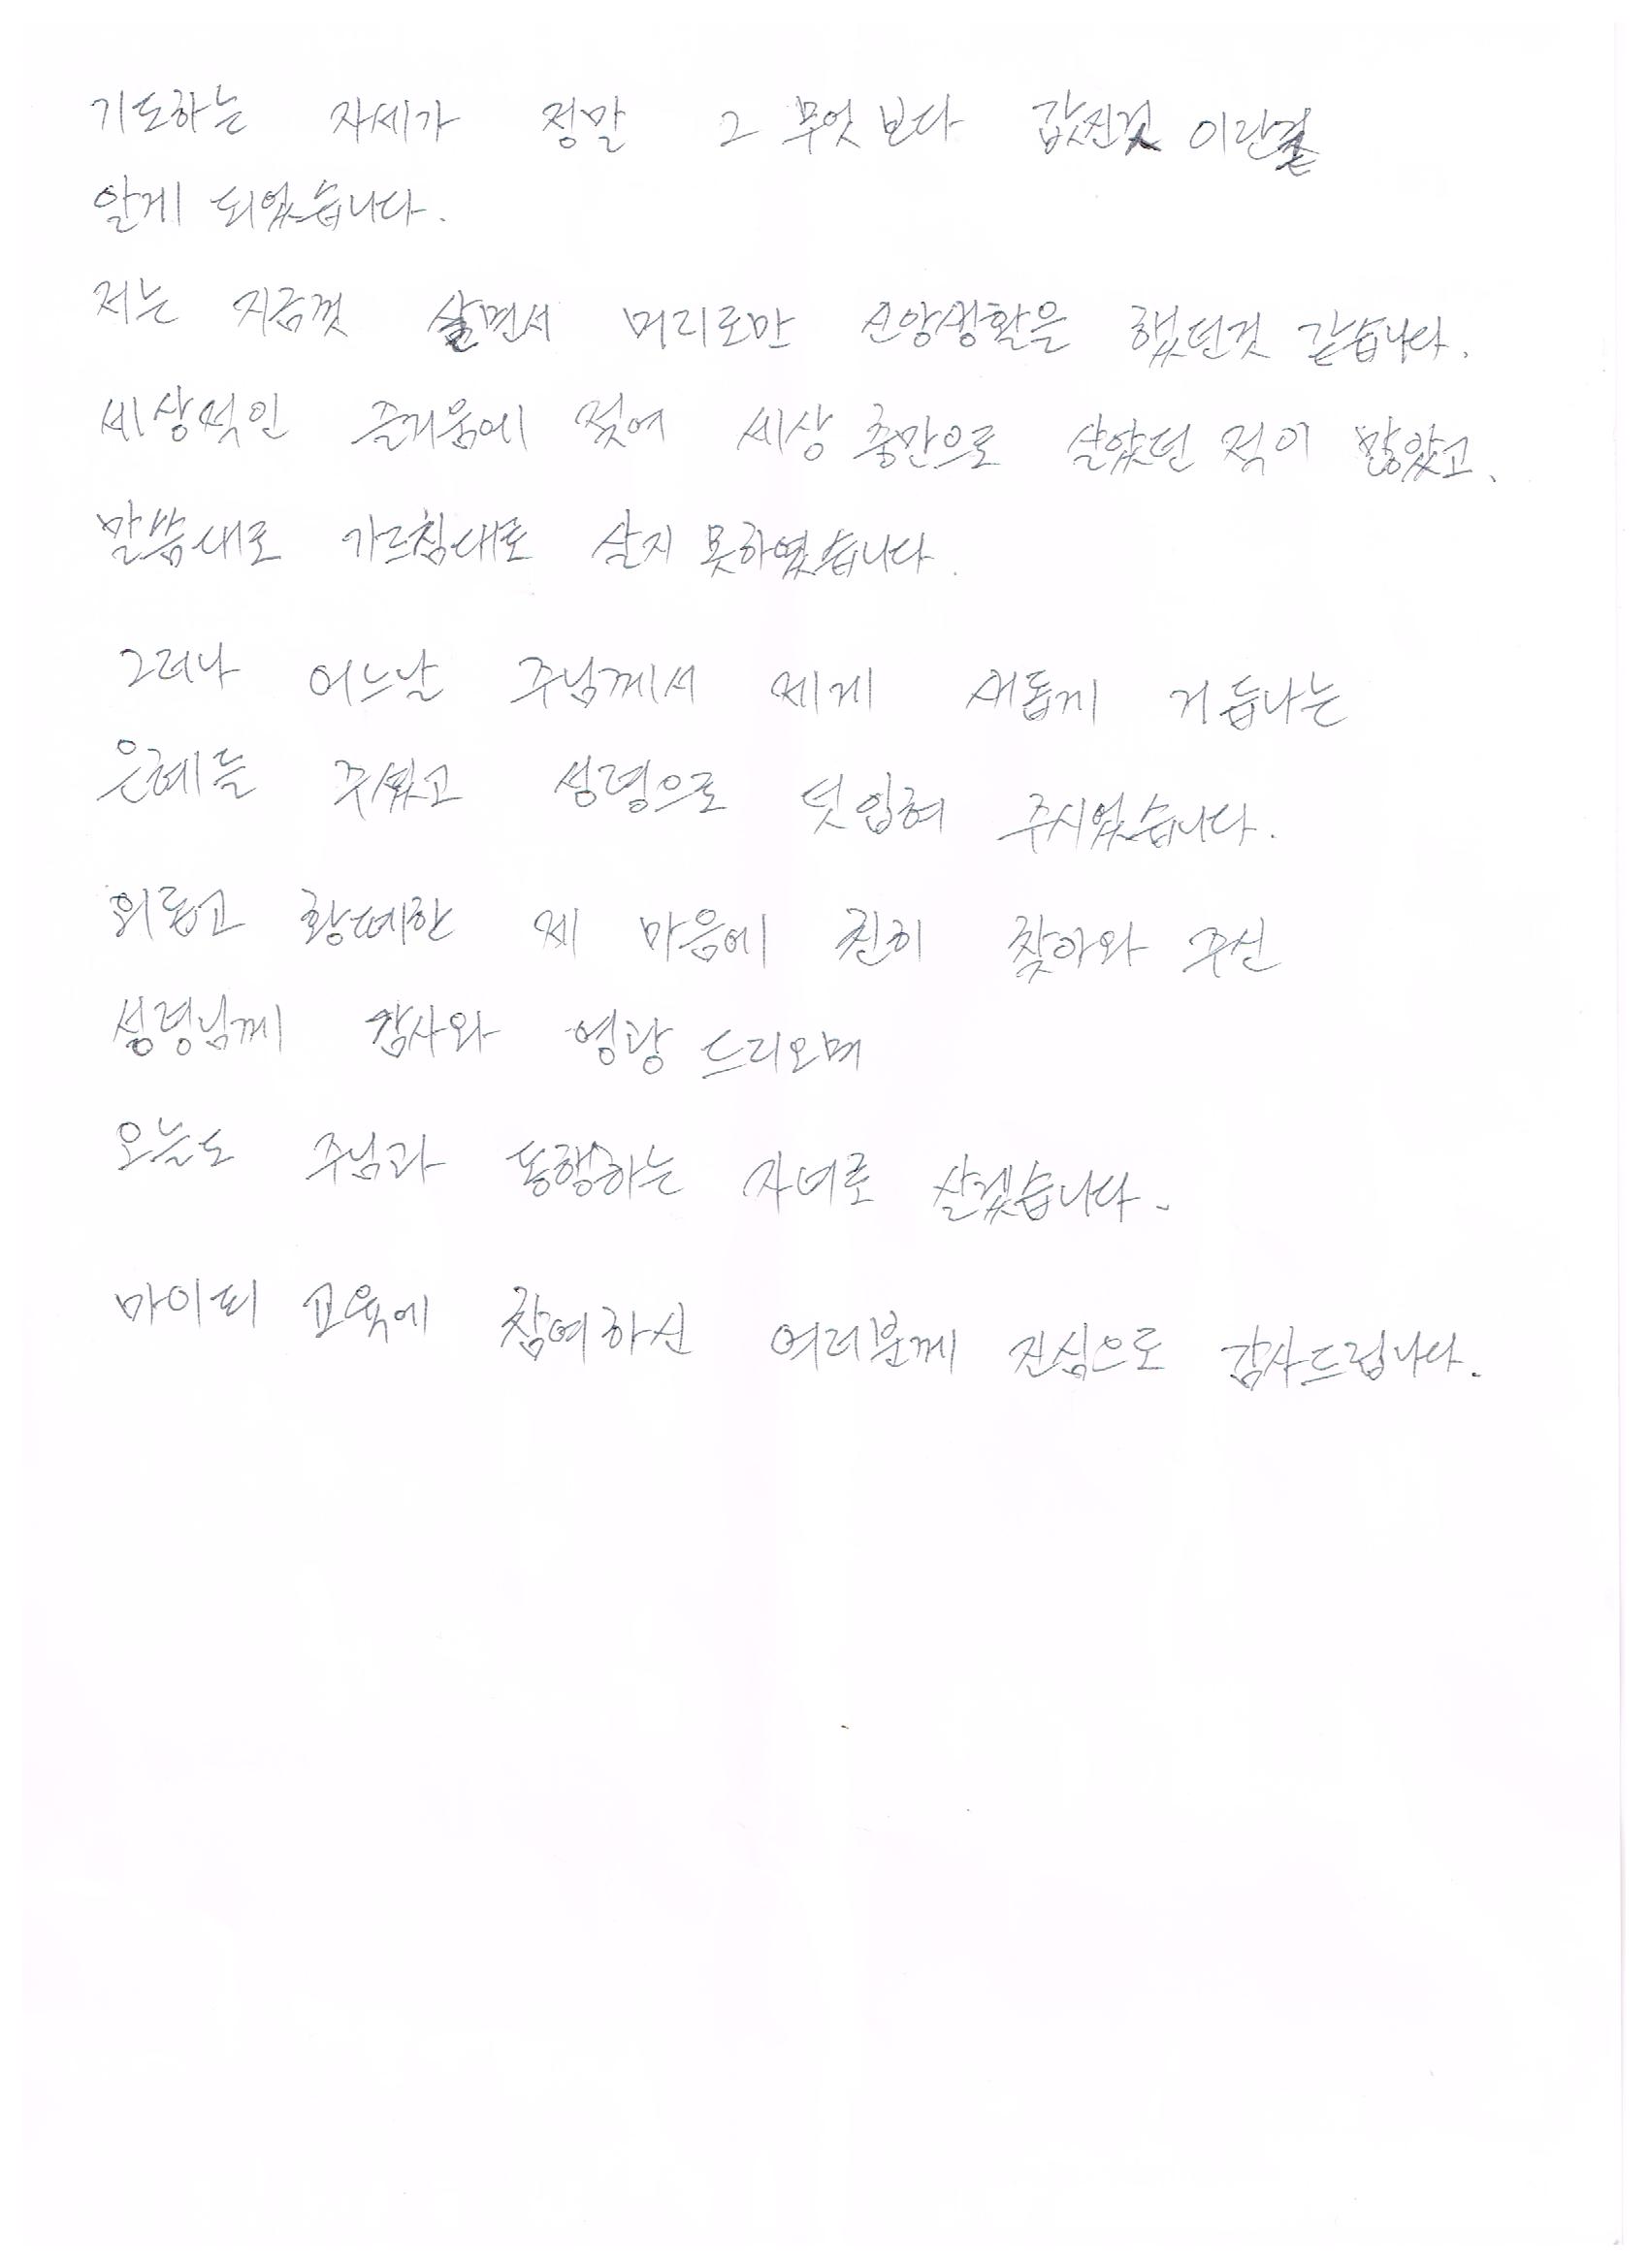 기도하는 자세가 정말 그 무엇 보다 값진것 이란걸
알게 되었습니다.
저는 지금껏 살면서 머리로만 신앙생활을 했던것 같습니다.
세상적인 즐거움에 젖어 세상 충만으로 살았던 적이 많았고,
말씀대로 가르침대로 살지 못하였습니다.
그러나 어느날 주님께서 제게 새롭게 거듭나는
은혜를 주셨고 성령으로 덧입혀 주시었습니다.
외롭고 황폐한 제 마음에 친히 찾아와 주신
성령님께 감사와 영광 드리오며
오늘도 주님과 동행하는 자녀로 살겠습니다.
마이티 교육에 참여하신 여러분께 진심으로 감사드립니다.